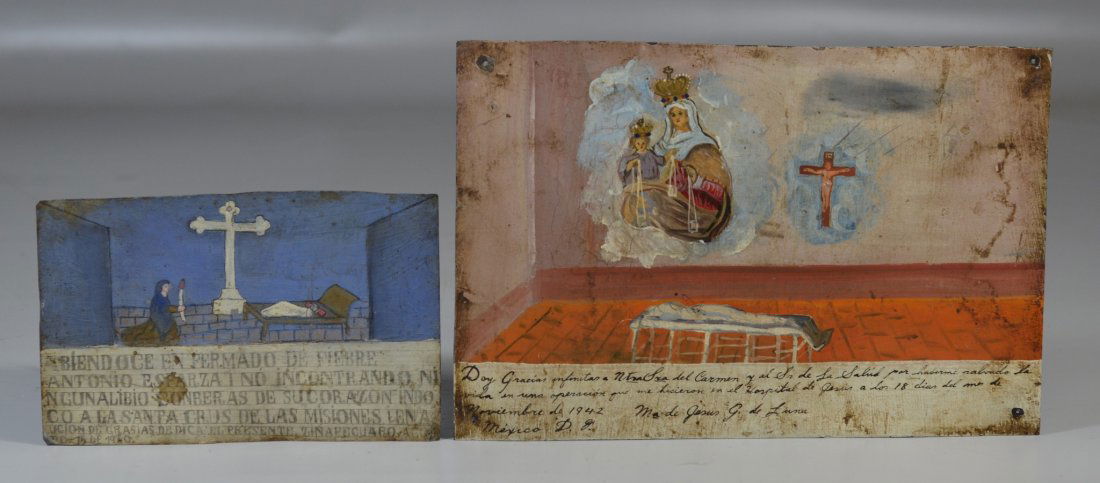 ABIENDOCE EN FERMADO DE FIEBRE
ANTONIO ESPARZA I NO INCONTRANDO, NI
NGUNALIBIO CONBERAS DE SU CORAZON INBO
CO A LA SANTA CRUS DE LAS MISIONES EN A
CION DE GRASIAS DE DICA EL PRESENTE
Doy Gracias infinitas a Ntra Sra del Carmen y al Sr. de La Salud por haberme salvado la
vida en una operacion que me hicieron en el Hospital de Jesus a los 18 dias del mes de
Noviembre de 1942 Ma de Jesus G. de Luna
México D. F.